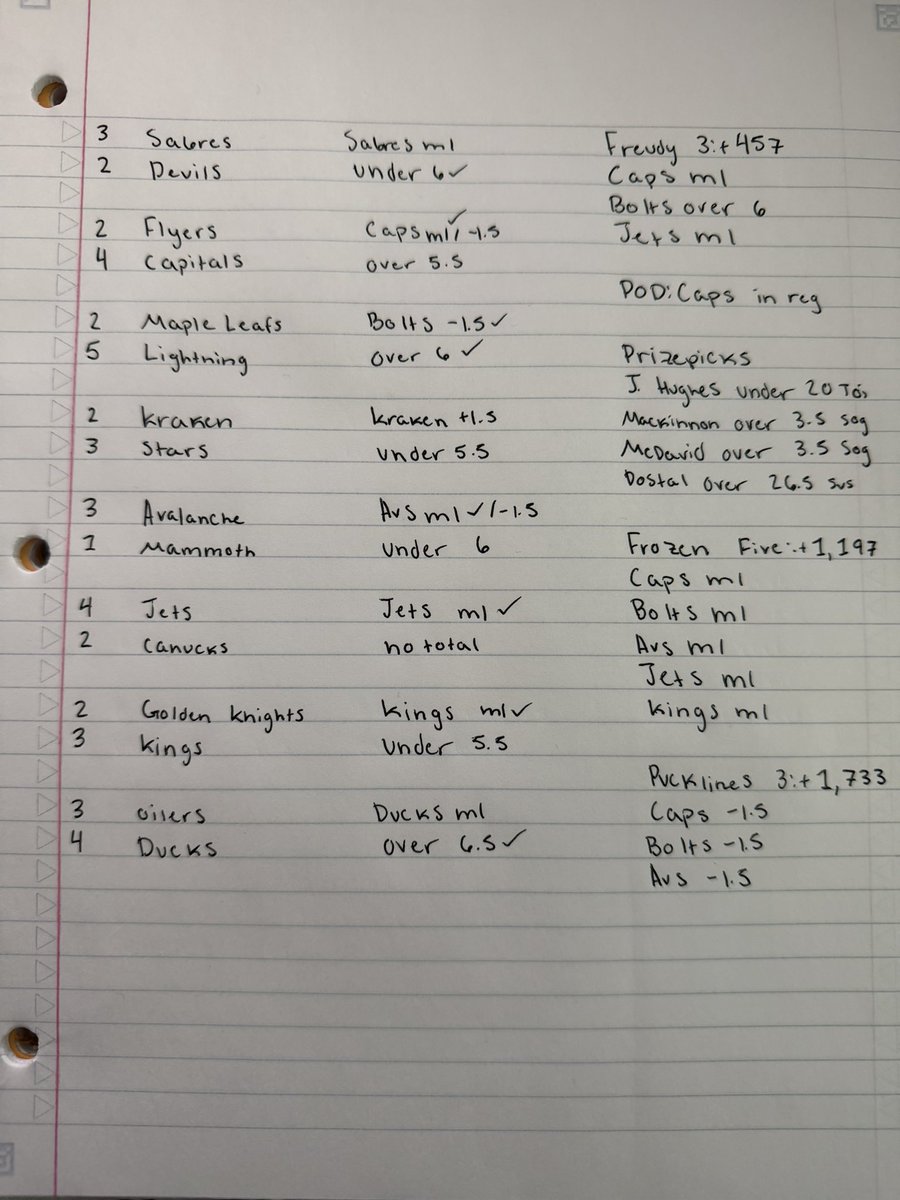 3 Sabres Sabres ml Freudy 3:+457
2 Devils under 6✓ Caps ml
Bolts over 6
2 Flyers Caps ml✓/-1.5 Jets ml
4 Capitals over 5.5
POD: Caps in reg
2 Maple Leafs Bolts -1.5✓
5 Lightning over 6✓ Prizepicks
J. Hughes under 20 TOI
2 Kraken Kraken +1.5 Mackinnon over 3.5 sog
3 Stars under 5.5 McDavid over 3.5 Sog
Dostal over 26.5 svs
3 Avalanche Avs ml✓/-1.5
1 Mammoth under 6 Frozen Five:+1,197
Caps ml
4 Jets Jets ml✓ Bolts ml
2 Canucks no total Avs ml
Jets ml
2 Golden Knights Kings ml✓ Kings ml
3 Kings under 5.5
Pucklines 3:+1,733
3 oilers Ducks ml Caps -1.5
4 Ducks over 6.5✓ Bolts -1.5
Avs -1.5